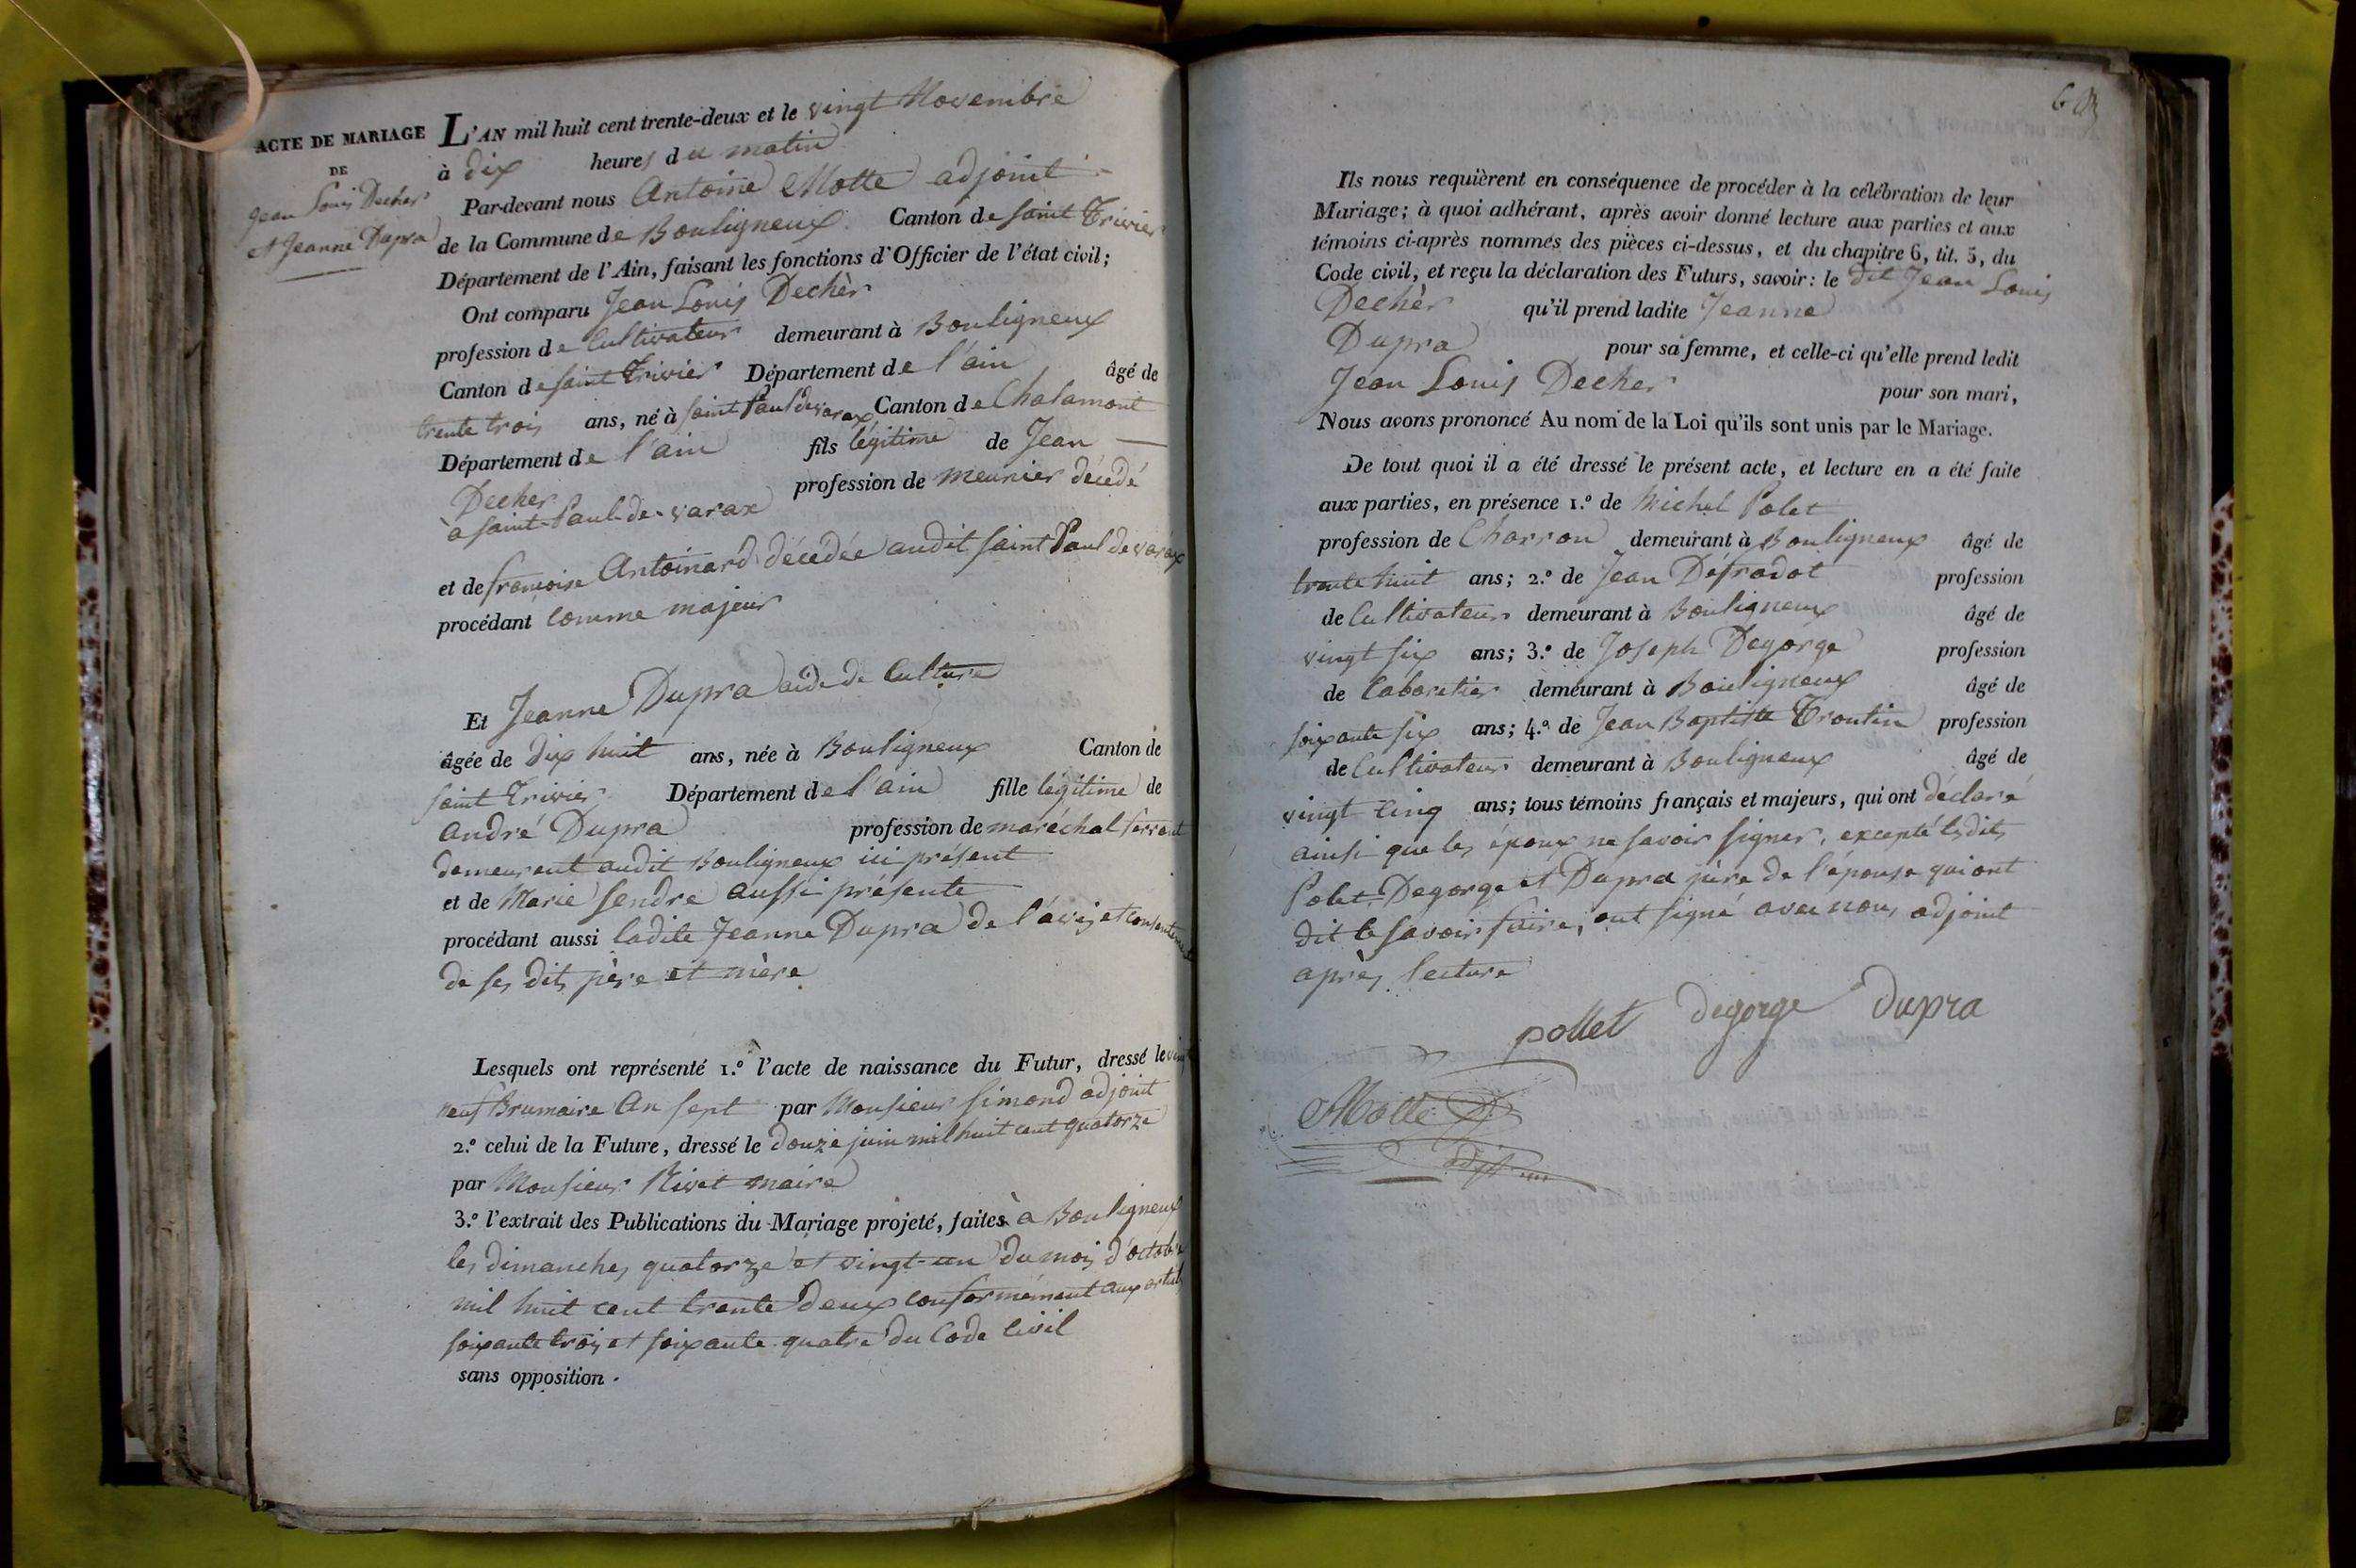 ACTE DE MARIAGE
DE
Jean Louis Decher
et Jeanne Dupra
L'AN mil huit cent trente-deux et le vingt Novembre
à dix heures du matin
Par-devant nous Antoine Motte adjoint
de la Commune de Bouligneux Canton de saint Trivier
Département de l'Ain, faisant les fonctions d'Officier de l'état civil;
Ont comparu Jean Louis Dechèr
profession de Cultivateur demeurant à Bouligneux
Canton de saint Trivier Département de l'ain âgé de
trente trois ans, né à saint Paul de varax Canton de Chalamont
Département de l'ain fils légitime de Jean
Decher profession de meunier décédé
à saint-Paul-de-varax
et de françoise Antoinard décédée audit saint Paul de varax
procédant comme majeur
Et Jeanne Dupra aide de Culture
âgée de dix huit ans, née à Bouligneux Canton de
saint Trivier Département de l'ain fille légitime de
andré Dupra profession de maréchal ferrant
demeurent audit Bouligneux ici présent
et de Marie sendre aussi présente
procédant aussi ladite Jeanne Dupra de l'avis et consenteme
de ses dits père et mère
Lesquels ont représenté 1.º l'acte de naissance du Futur, dressé le
neuf Brumaire An sept par Monsieur simond adjoint
2.º celui de la Future, dressé le douze juin mil huit cent quatorze
par Monsieur Rivet maire
3.º l'extrait des Publications du Mariage projeté, faites à Bouligneux
les dimanches quatorze et vingt-un du mois d'octobre
mil huit cent trente deux conformément aux
soixante trois et soixante quatre du Code Civil
sans opposition.
Ils nous requièrent en conséquence de procéder à la célébration de leur
Mariage; à quoi adhérant, après avoir donné lecture aux parties et aux
témoins ci-après nommés des pièces ci-dessus, et du chapitre 6, tit. 5, du
Code civil, et reçu la déclaration des Futurs, savoir: le dit Jean Louis
Dechèr qu'il prend ladite Jeanne
Dupra pour sa femme, et celle-ci qu'elle prend ledit
Jean Louis Decher pour son mari,
Nous avons prononcé Au nom de la Loi qu'ils sont unis par le Mariage.
De tout quoi il a été dressé le présent acte, et lecture en a été faite
aux parties, en présence 1.º de Michel Polet
profession de Charron demeurant à Bouligneux âgé de
trente huit ans; 2.º de Jean Défradot profession
de Cultivateur demeurant à Bouligneux âgé de
vingt six ans; 3.º de Joseph Degorge profession
de Cabaretier demeurant à Bouligneux âgé de
soixante six ans; 4.º de Jean Baptiste Troutin profession
de Cultivateur demeurant à Bouligneux âgé de
vingt cinq ans; tous témoins français et majeurs, qui ont déclaré
ainsi que les époux ne savoir signer, excepté lesdits
Polet, Degorge et Dupra père de l'épouse qui ont
dit le savoir faire, ont signé avec nous adjoint
après lecture
pollet degorge dupra
Motte